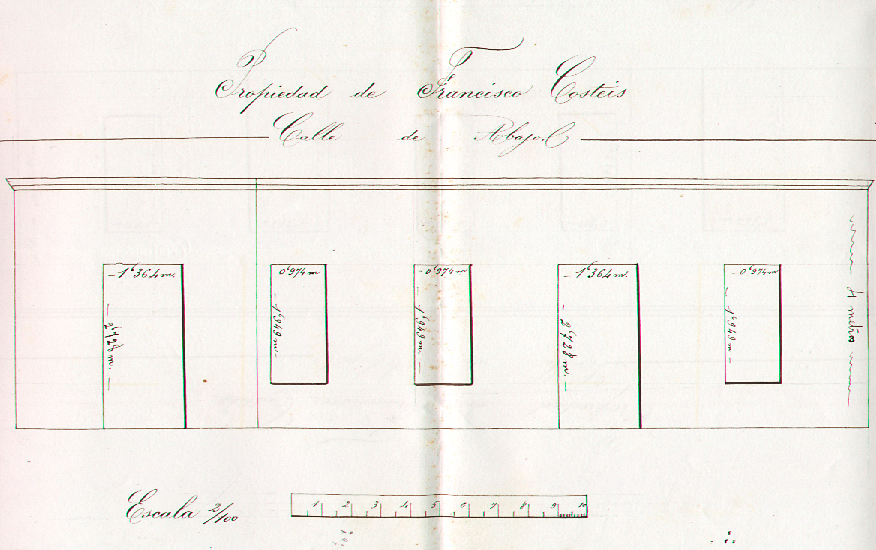 Propiedad de Francisco Costeis
Calle de Abajo
1'364 m.
0'974 m
0'974 m
1'364 m.
0'974 m
2'728 m.
1'949 m.
1'949 m.
2'728 m.
1'949 m.
4 metros
Escala 2/100
1 2 3 4 5 6 7 8 9 10